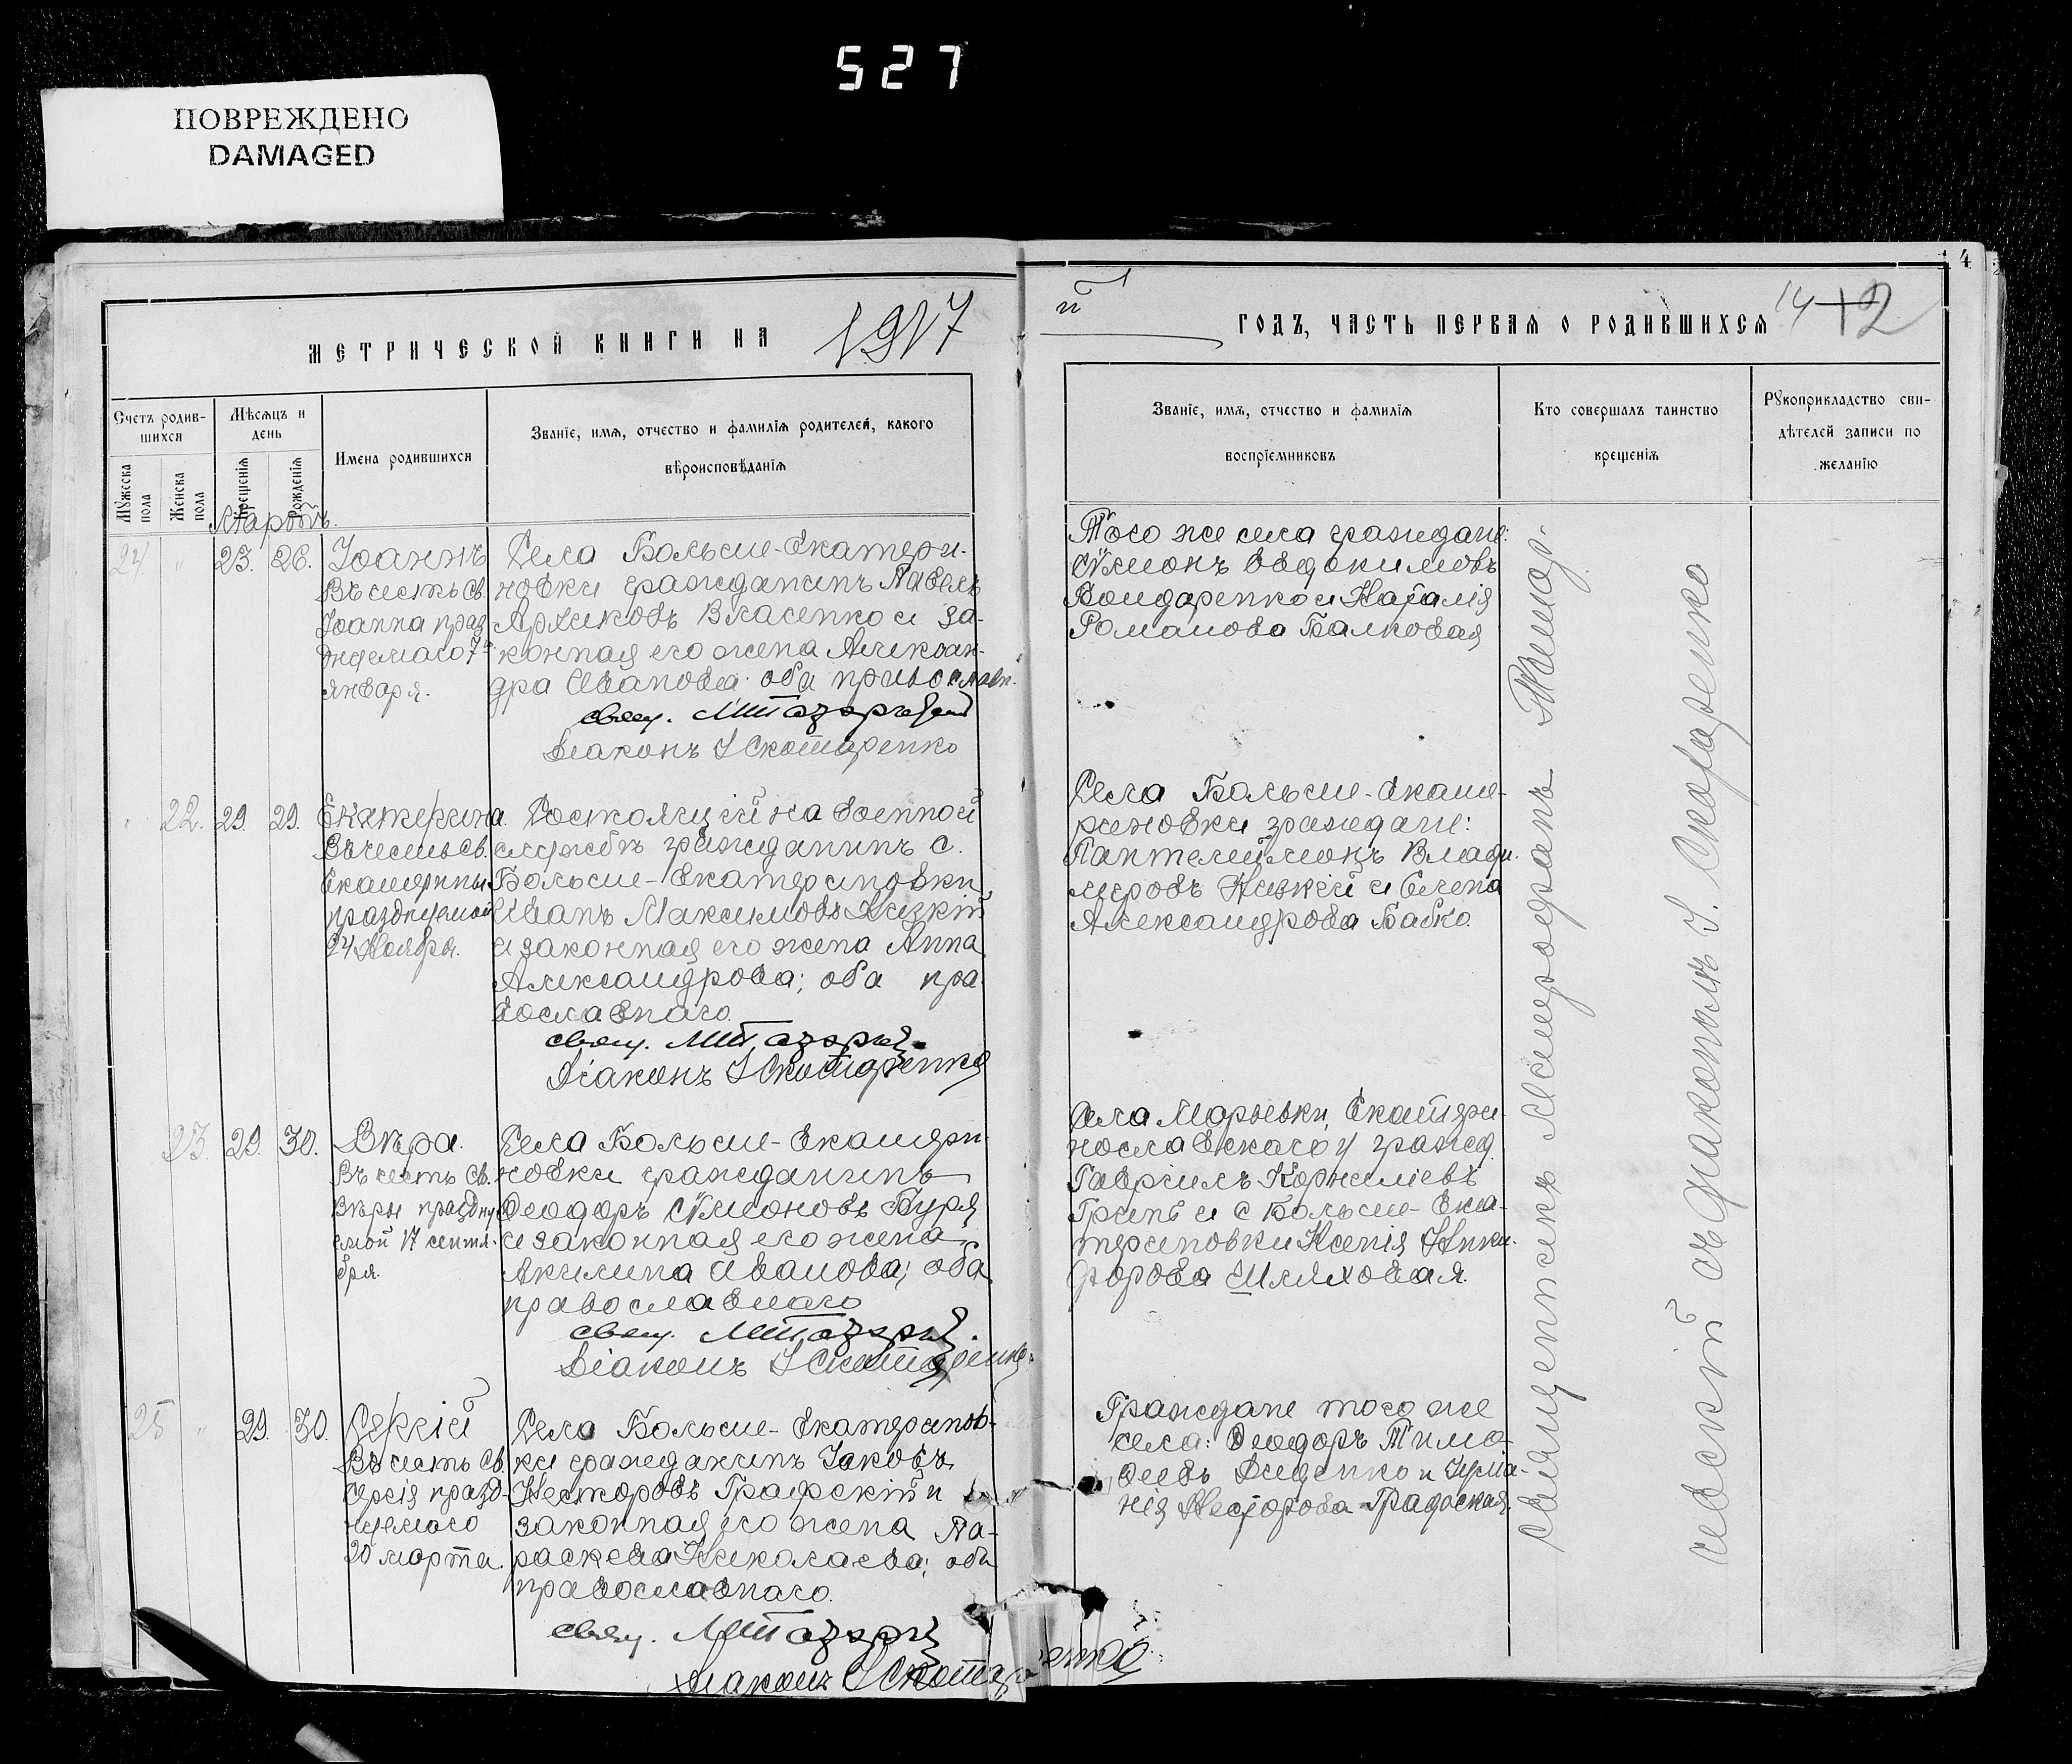 527
ПОВРЕЖДЕНО
DAMAGED
4
МЕТРИЧЕСКОЙ КНИГИ НА 1917
й ГОДЪ, ЧАСТЬ ПЕРВАЯ О РОДИВШИХСЯ 14 12
Счетъ родив-
шихся
Мѣсяцъ и
день
Мужеска
пола
Женска
пола
Крещенія
Рожденія
Имена родившихся
Званіе, имя, отчество и фамилія родителей, какого
вѣроисповѣданія
Званіе, имя, отчество и фамилія
воспріемниковъ
Кто совершалъ таинство
крещенія
Рукоприкладство сви-
дѣтелей записи по
желанію
Мартъ.
24. " 23. 26.
Іоаннъ
Въ честь Св.
Іоанна праз
днуемаго 7
января.
Села Больше-Екатери-
новки гражданинъ Павелъ
Архиповъ Власенко и за-
конная его жена Алексан-
дра Иванова: оба православн.
свящ.
Діаконъ І Скотаренко
Того же села граждане:
Сѵмеонъ Евдокимовъ
Бондаренко и Наталія
Романова Балковая
" 22. 29. 29.
Екатерина.
Въ честь Св.
Екатерины
празднуемой
24 Ноября.
Состоящій на военной
службѣ гражданинъ с.
Больше-Екатериновки
Иванъ Максимовъ Низкій
и законная его жена Анна
Александрова; оба пра-
вославнаго.
свящ.
Діаконъ І Скотаренко
Села Больше-Екате-
риновки граждане:
Пантелеймонъ Влади-
міровъ Низкій и Елена
Александрова Бабко.
23. 29. 30.
Вѣра.
Въ честь Св.
Вѣры празdну
емой 17 сентя-
бря.
Села Больше-Екатери-
новки гражданинъ
Ѳеодоръ Сѵмеоновъ Буря
и законная его жена
Акилина Иванова; оба
православнаго
свящ.
Діаконъ І Скотаренко
Села Марьевки, Екатери-
нославскаго у гражд
Гавріилъ Корниліевъ
Гринь и с Больше-Ека-
териновки Ксенія Ники-
форова Шляховая.
25 " 29. 30.
Сергій
Въ честь Св.
Сергія празд-
нуемаго
20 марта.
Села Больше-Екатеринов-
ки гражданинъ Іаковъ
Несторовъ Графскій и
законная его жена Па-
раскева Николаева; оба
православнаго.
свящ.
Діаконъ І Скотаренко
Граждане того же
села: Ѳеодоръ Тимо-
ѳеевъ Диденко и
Несторова Графская.
Священникъ Митрофанъ
съ діакономъ І. Скотаренко